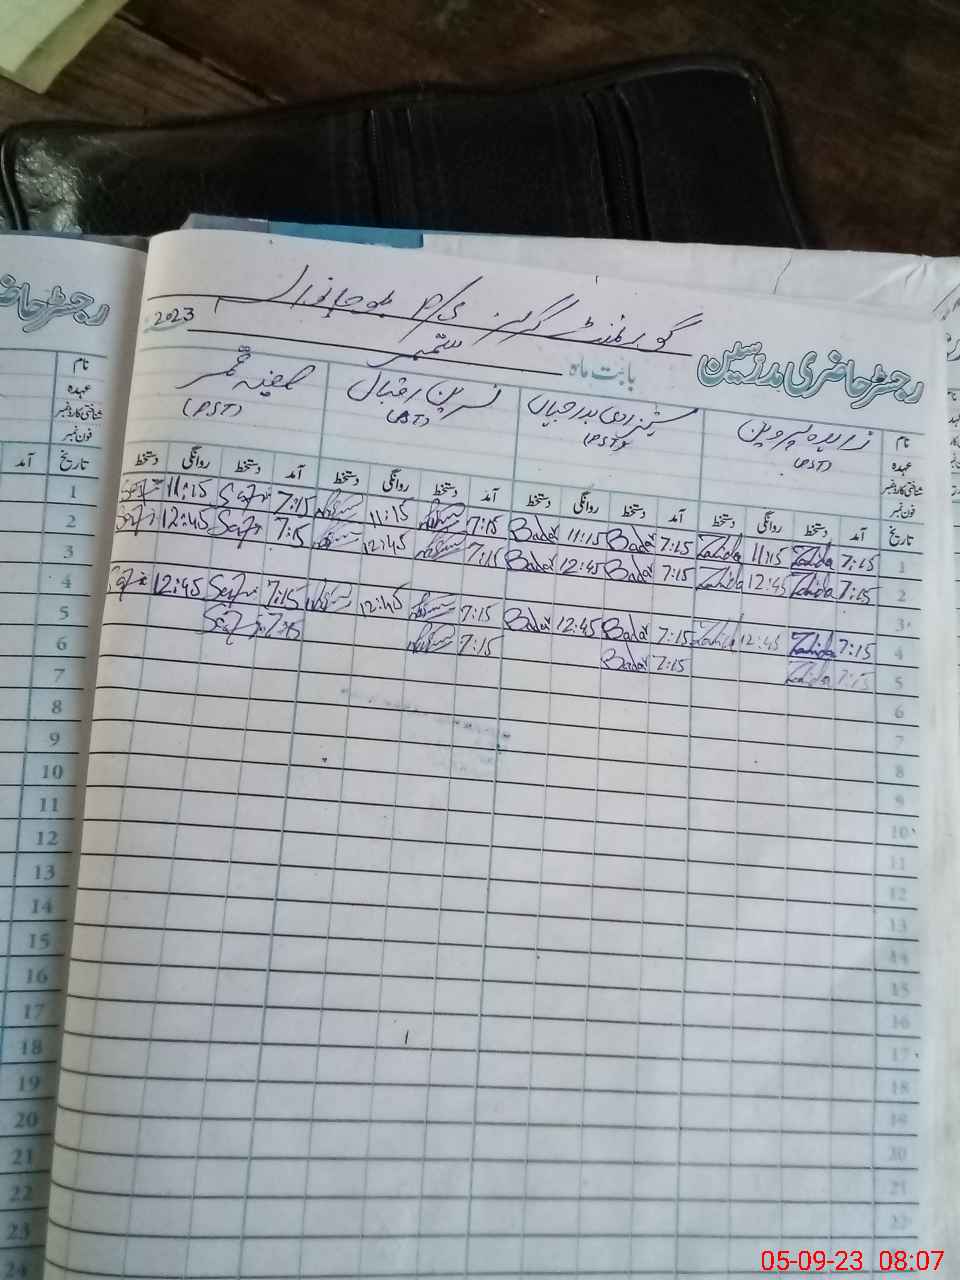 رجسٹر حاضری مدرسین
گورنمنٹ گرلز
بابت ماہ ستمبر 2023
نام زاہدہ پروین شہزادی بدر جہاں نسرین اقبال صفیہ
عہدہ (PST) (PST) (PST) (PST)
شناختی کارڈ نمبر
فون نمبر
تاریخ آمد دستخط روانگی دستخط آمد دستخط روانگی دستخط آمد دستخط روانگی دستخط آمد دستخط روانگی دستخط
1 7:15 Zahida 11:15 Zahida 7:15 Badar 11:15 Badar 7:15 11:15 7:15 Safi 11:15 Safi
2 7:15 Zahida 12:45 Zahida 7:15 Badar 12:45 Badar 7:15 12:45 7:15 Safi 12:45 Safi
3
4 7:15 Zahida 12:45 Zahida 7:15 Badar 12:45 Badar 7:15 12:45 7:15 Safi 12:45 Safi
5 7:15 Zahida 7:15 Badar 7:15 7:15 Safi
6
7
8
9
10
11
12
13
14
15
16
17
18
19
20
21
22
رجسٹر حاضری
نام
عہدہ
شناختی کارڈ نمبر
فون نمبر
تاریخ آمد
1
2
3
4
5
6
7
8
9
10
11
12
13
14
15
16
17
18
19
20
21
22
23
24
05-09-23 08:07